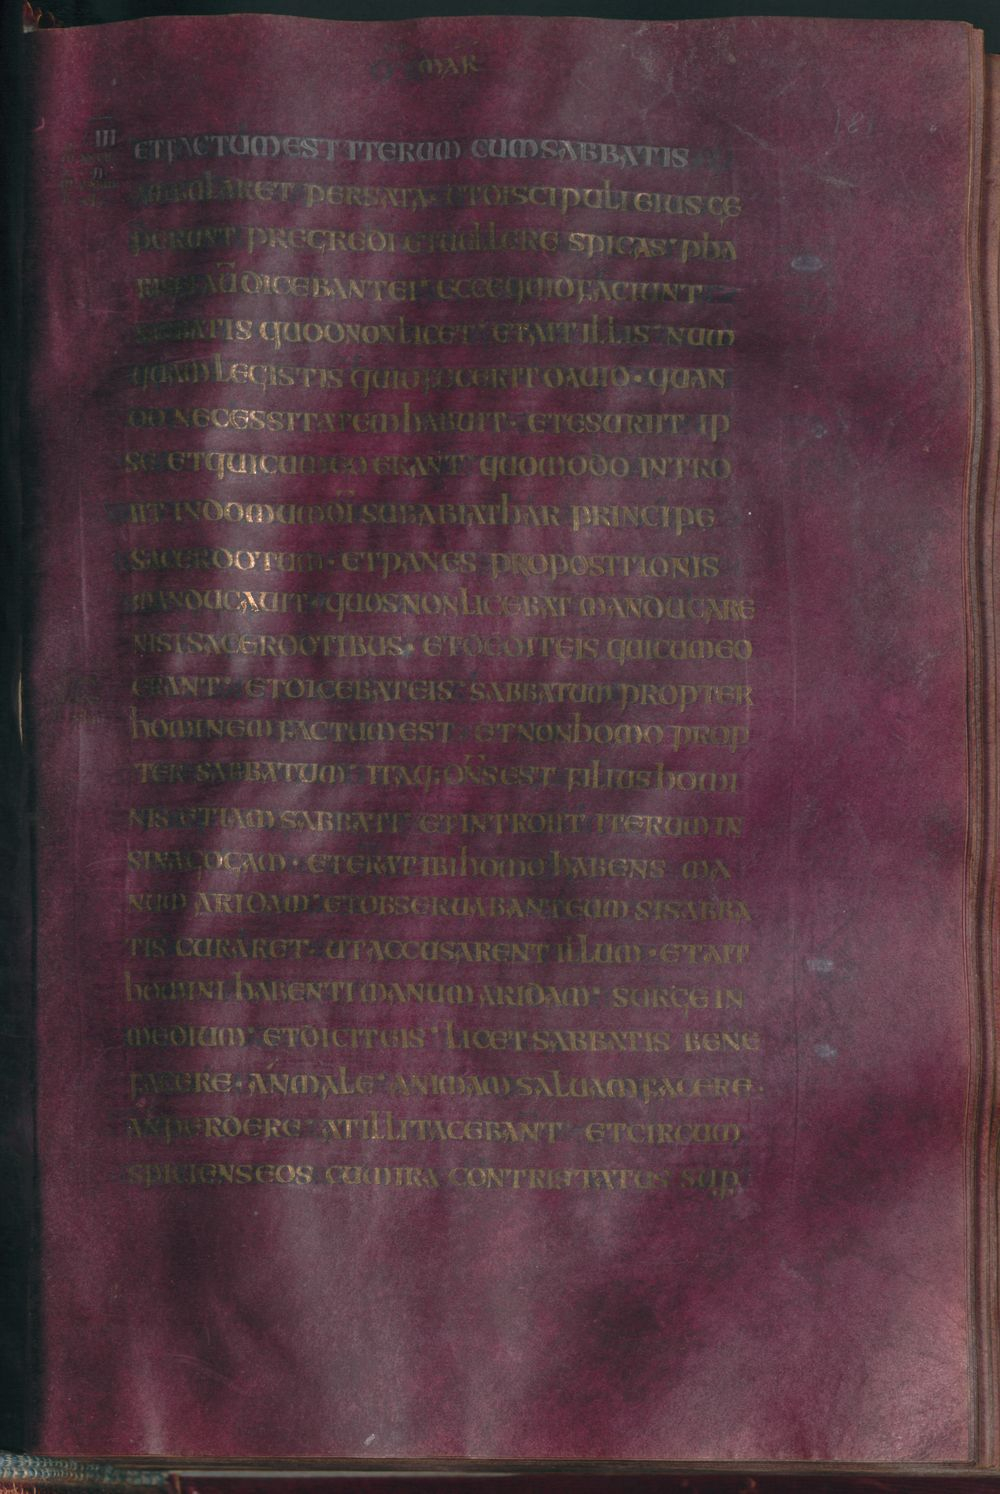 MAR
III
ET FACTUM EST ITERUM CUM SABBATIS
AMBULARET PER SATA ET DISCIPULI EIUS CE
PERUNT PREGREDI ET UELLERE SPICAS PHA
RISEI AŪ DICEBANT EI ECCE QUID FACIUNT
SABBATIS QUOD NON LICET ET AIT ILLIS NUM
QUAM LEGISTIS QUID FECERIT DAUID QUAN
DO NECESSITATEM HABUIT ET ESURIIT IP
SE ET QUI CUM EO ERANT QUOMODO INTRO
IIT IN DOMUM DĪ SUB ABIATHAR PRINCIPE
SACERDOTUM ET PANES PROPOSITIONIS
MANDUCAUIT QUOS NON LICEBAT MANDUCARE
NISI SACERDOTIBUS ET DEDIT EIS QUI CUM EO
ERANT ET DICEBAT EIS SABBATUM PROPTER
HOMINEM FACTUM EST ET NON HOMO PROP
TER SABBATUM ITAQ; DN̄S EST FILIUS HOMI
NIS ETIAM SABBATI ET INTROIIT ITERUM IN
SINAGOGAM ET ERAT IBI HOMO HABENS MA
NUM ARIDAM ET OBSERUABANT EUM SI SABBA
TIS CURARET UT ACCUSARENT ILLUM ET AIT
HOMINI HABENTI MANUM ARIDAM SURGE IN
MEDIUM ET DICIT EIS LICET SABBATIS BENE
FACERE AN MALE ANIMAM SALUAM FACERE
AN PERDERE AT ILLI TACEBANT ET CIRCUM
SPICIENS EOS CUM IRA CONTRISTATUS SUP